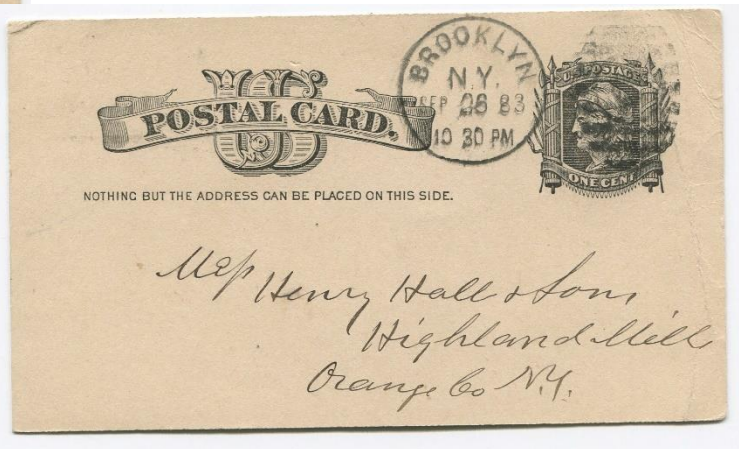 US
POSTAL CARD.
BROOKLYN
N.Y.
SEP 26 83
10 30 PM
U.S. POSTAGE
ONE CENT
NOTHING BUT THE ADDRESS CAN BE PLACED ON THIS SIDE.
Mess Henry Hall & Sons
Highland Mills
Orange Co N.Y.